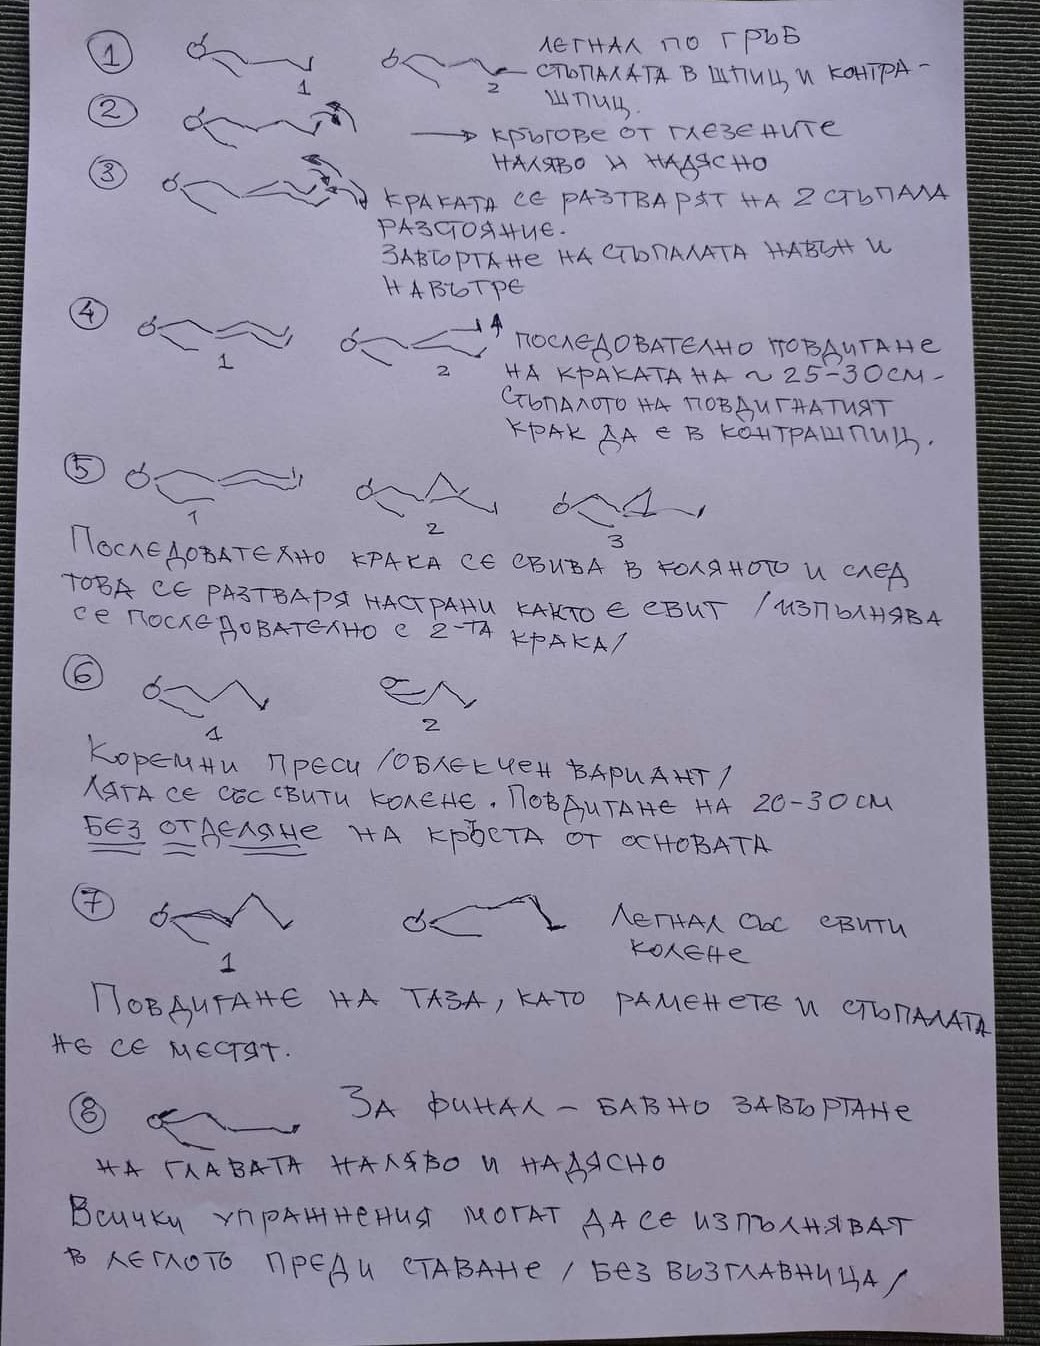 1 ЛЕГНАЛ ПО ГРЪБ
СТЪПАЛАТА В ШПИЦ И КОНТРА-
1 2 ШПИЦ.
2 → КРЪГОВЕ ОТ ГЛЕЗЕНИТЕ
НАЛЯВО И НАДЯСНО
3 КРАКАТА СЕ РАЗТВАРЯТ НА 2 СТЪПАЛА
РАЗСТОЯНИЕ.
ЗАВЪРТАНЕ НА СТЪПАЛАТА НАВЪН И
НАВЪТРЕ
4 ПОСЛЕДОВАТЕЛНО ПОВДИГАНЕ
1 2 НА КРАКАТА НА ~ 25-30СМ-
СТЪПАЛОТО НА ПОВДИГНАТИЯТ
КРАК ДА Е В КОНТРАШПИЦ.
5
1 2 3
ПОСЛЕДОВАТЕЛНО КРАКА СЕ СВИВА В КОЛЯНОТО И СЛЕД
ТОВА СЕ РАЗТВАРЯ НАСТРАНИ КАКТО Е СВИТ /ИЗПЪЛНЯВА
СЕ ПОСЛЕДОВАТЕЛНО С 2-ТА КРАКА/
6
1 2
КОРЕМНИ ПРЕСИ /ОБЛЕКЧЕН ВАРИАНТ/
ЛЯГА СЕ СЪС СВИТИ КОЛЕНЕ. ПОВДИГАНЕ НА 20-30СМ
БЕЗ ОТДЕЛЯНЕ НА КРЪСТА ОТ ОСНОВАТА
7 ЛЕГНАЛ СЪС СВИТИ
1 КОЛЕНЕ
ПОВДИГАНЕ НА ТАЗА, КАТО РАМЕНЕТЕ И СТЪПАЛАТА
НЕ СЕ МЕСТЯТ.
8 ЗА ФИНАЛ - БАВНО ЗАВЪРТАНЕ
НА ГЛАВАТА НАЛЯВО И НАДЯСНО
ВСИЧКИ УПРАЖНЕНИЯ МОГАТ ДА СЕ ИЗПЪЛНЯВАТ
В ЛЕГЛОТО ПРЕДИ СТАВАНЕ /БЕЗ ВЪЗГЛАВНИЦА/